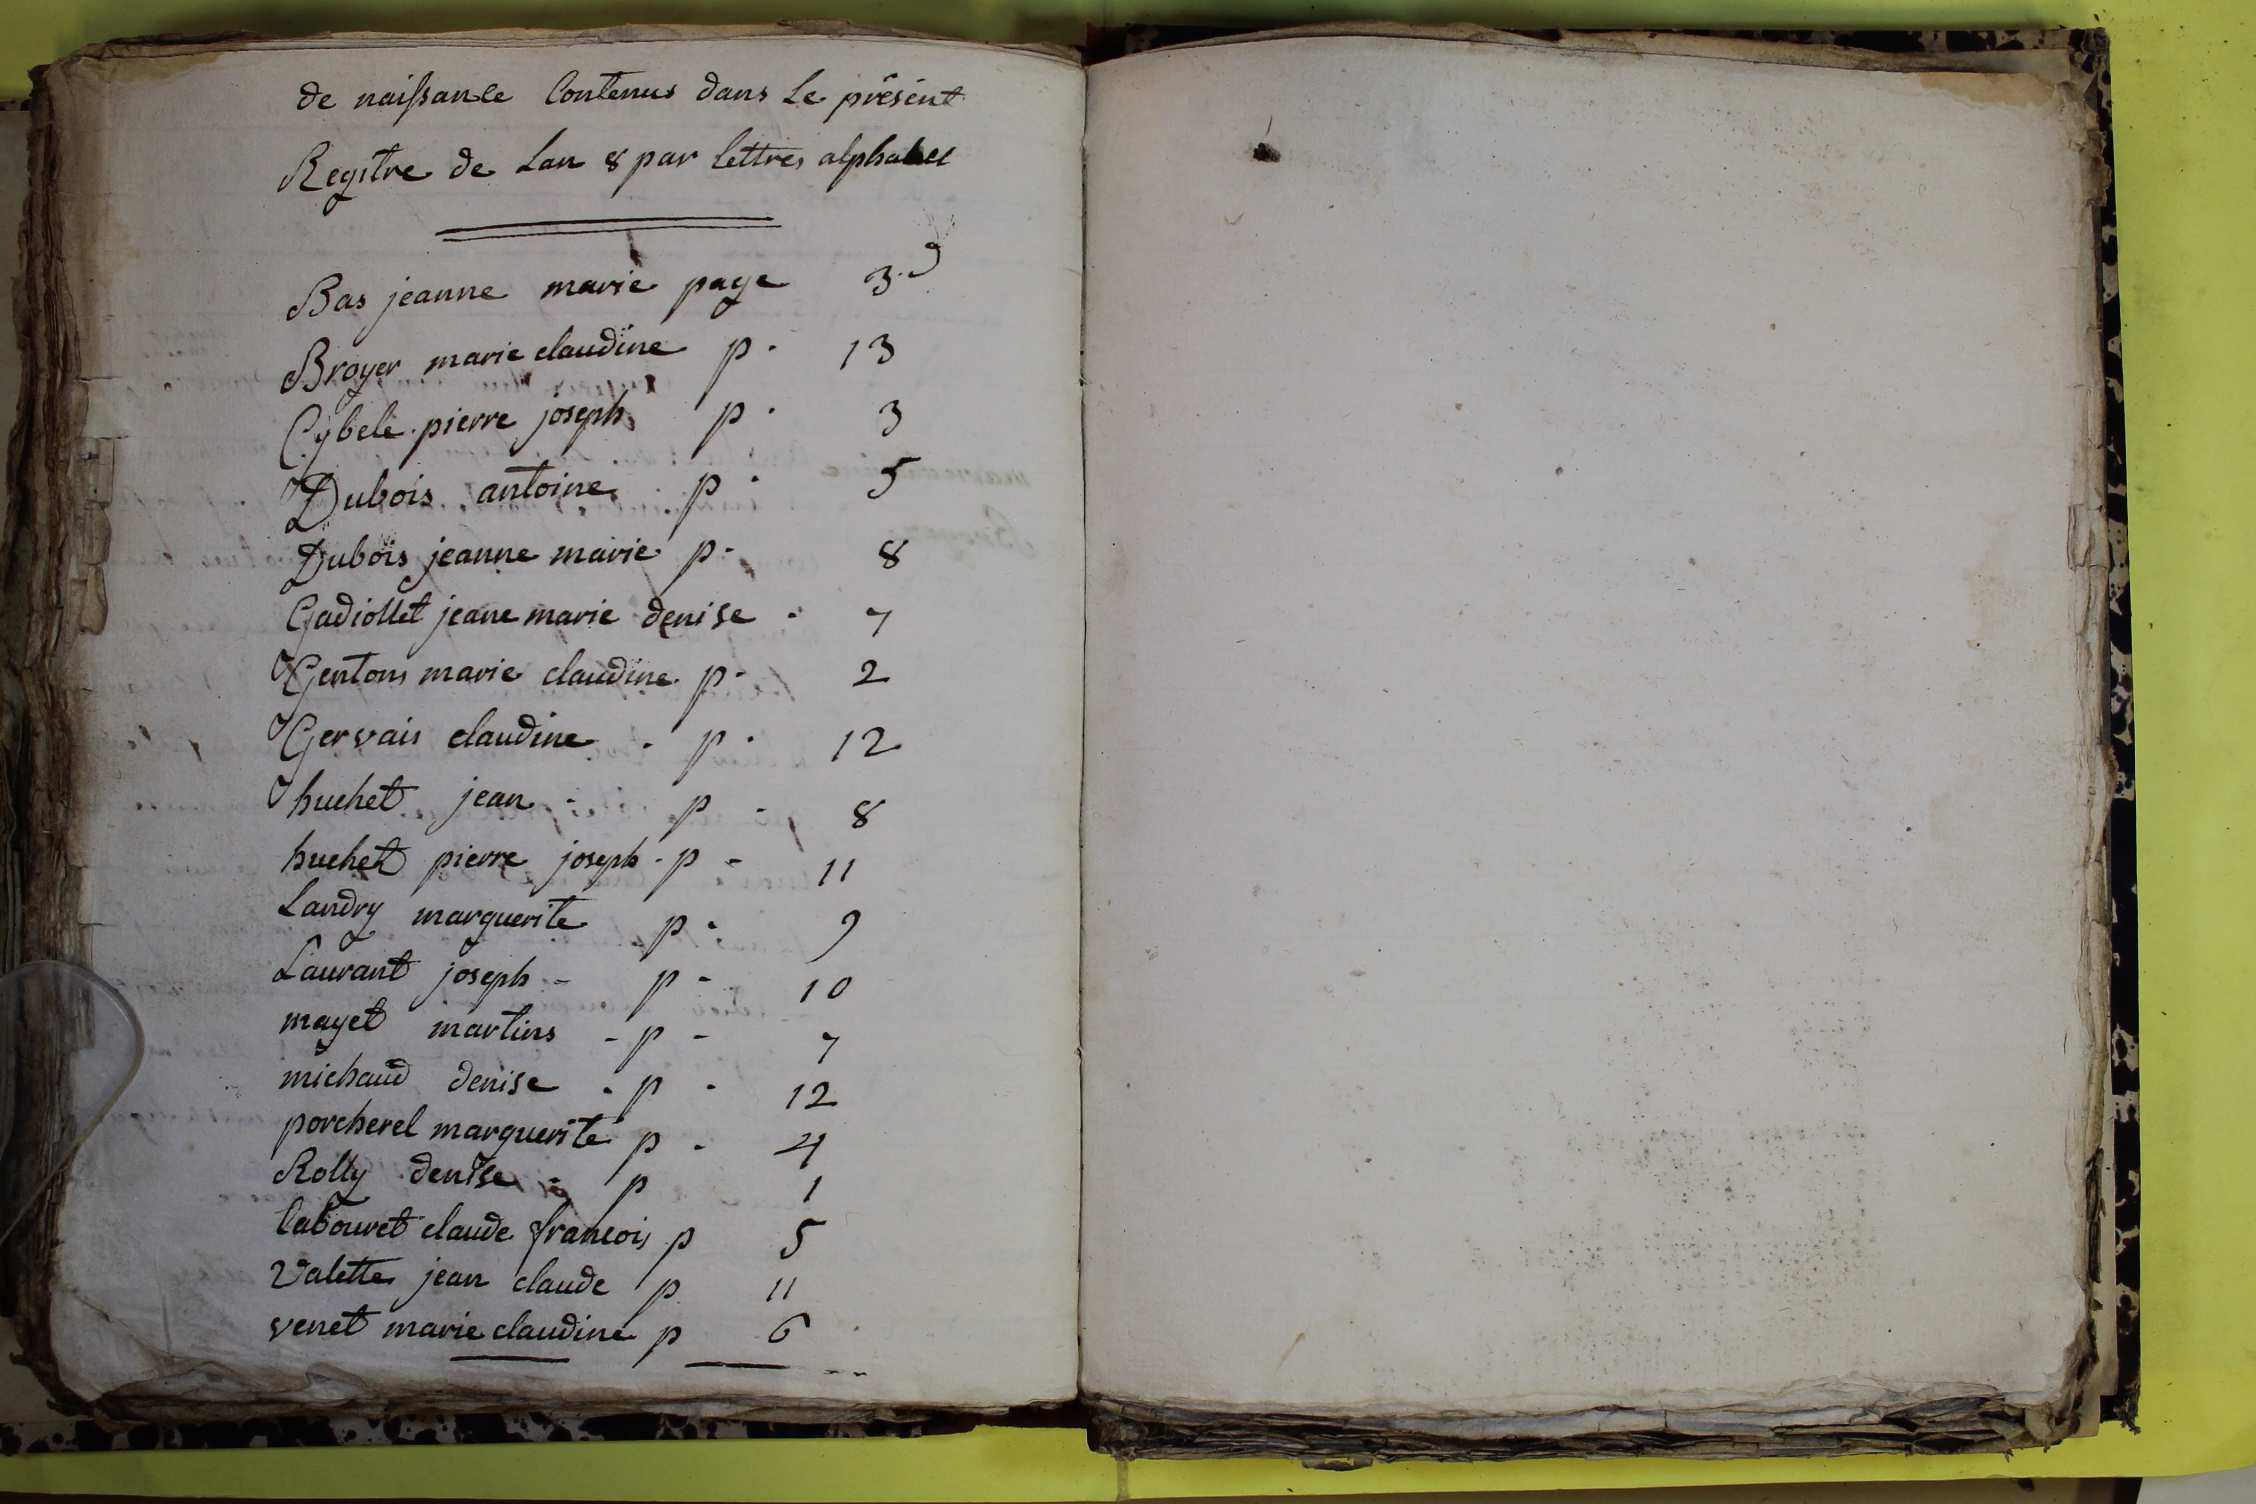 de naissance Contenus dans Le présent
Registre de Lan 8 par lettres alphabet
Bas jeanne marie page 3
Broyer marie claudine p. 13
Cybele pierre joseph p. 3
Dubois antoine p. 5
Dubois jeanne marie p. 8
Gadiollet jeane marie denise - 7
Gentons marie claudine p. 2
Gervais claudine - p. 12
huchet jean - p - 8
huchet pierre joseph - p - 11
Landry marguerite p. 9
Laurant joseph - p - 10
mayet martins - p - 7
michaud denise - p - 12
porcherel marguerite p - 4
Rolly denise - p 1
tabouret claude francois p 5
Valette jean claude p 11
venet marie claudine p 6